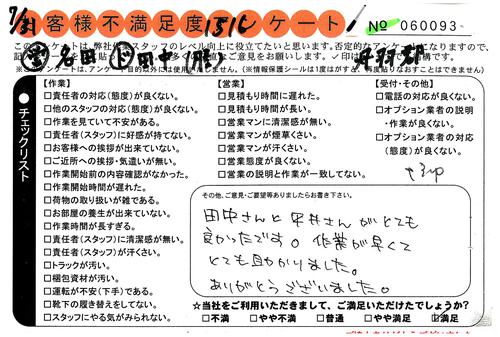 7/31 お客様不満足度アンケート! № 060093
このアンケートは、弊社スタッフのレベル向上に役立てたいと思います。否定的なアンケートになりますので、
※このアンケートは、アンケート目的以外には使用いたしません。(※情報保護シールは1度はがすと、再度貼りなおすことはできません)
●チェックリスト
【作業】
□責任者の対応(態度)が良くない。
□他のスタッフの対応(態度)が良くない。
□作業を見ていて不安がある。
□責任者(スタッフ)に好感が持てない。
□お客様への挨拶が出来ていない。
□ご近所への挨拶・気遣いが無い。
□作業開始前の内容確認がなかった。
□作業開始時間が遅れた。
□荷物の取り扱いが雑である。
□お部屋の養生が出来ていない。
□作業時間が長すぎる。
□責任者(スタッフ)に清潔感が無い。
□責任者(スタッフ)が汗くさい。
□トラックが汚い。
□梱包資材が汚い。
□運転が不安(下手)である。
□靴下の履き替えをしてない。
□スタッフにやる気がみられない。
【営業】
□見積もり時間に遅れた。
□見積もり時間が長い。
□営業マンに清潔感が無い。
□営業マンが煙草くさい。
□営業マンが汗くさい。
□営業態度が良くない。
□営業の説明と作業が一致してない。
【受付・その他】
□電話の対応が良くない。
□オプション業者の説明
・作業が良くない。
□オプション業者の対応
(態度)が良くない。
その他、ご意見・ご要望等ありましたらお書き下さい。
田中さんと平井さんがとても
良かったです。作業が早くて
とても助かりました。
ありがとうございました。
☆当社をご利用いただきまして、ご満足いただけたでしょうか?
□不満 □やや不満 □普通 □やや満足 ☑満足